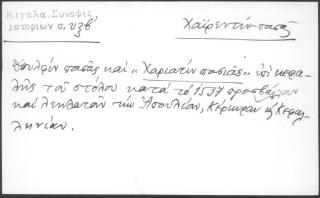 Κιγάλα, Σύνοψις
Ἱστοριῶν σ. υξβ'
Χαϊρεντίν πασᾶ
Δουλφίν πασᾶς καί "Χαριατίν πασιᾶς" ἐπί κεφα-
λῆς τοῦ στόλου κατά τό 1537 προσβάλλουν
καί λεηλατοῦν τήν Ἀπουλίαν, Κέρκυραν κ Κεφαλ-
ληνίαν.